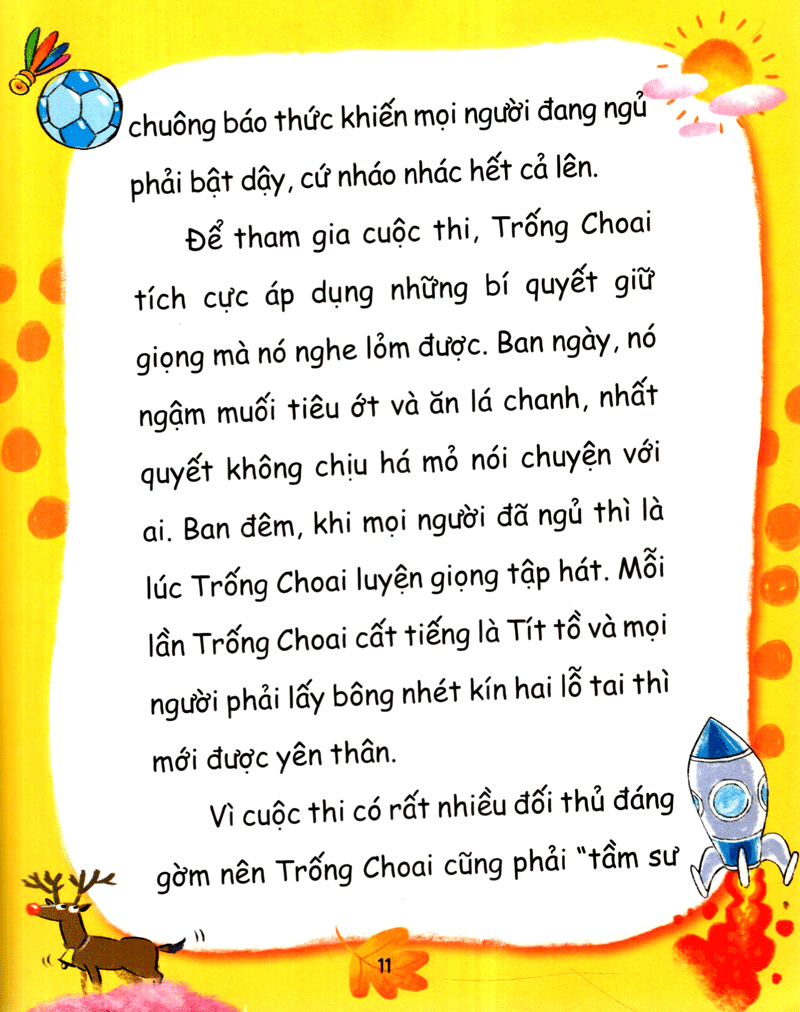 chuông báo thức khiến mọi người đang ngủ
phải bật dậy, cứ nháo nhác hết cả lên.
Để tham gia cuộc thi, Trống Choai
tích cực áp dụng những bí quyết giữ
giọng mà nó nghe lỏm được. Ban ngày, nó
ngậm muối tiêu ớt và ăn lá chanh, nhất
quyết không chịu há mỏ nói chuyện với
ai. Ban đêm, khi mọi người đã ngủ thì là
lúc Trống Choai luyện giọng tập hát. Mỗi
lần Trống Choai cất tiếng là Tít tồ và mọi
người phải lấy bông nhét kín hai lỗ tai thì
mới được yên thân.
Vì cuộc thi có rất nhiều đối thủ đáng
gờm nên Trống Choai cũng phải “tầm sư
11